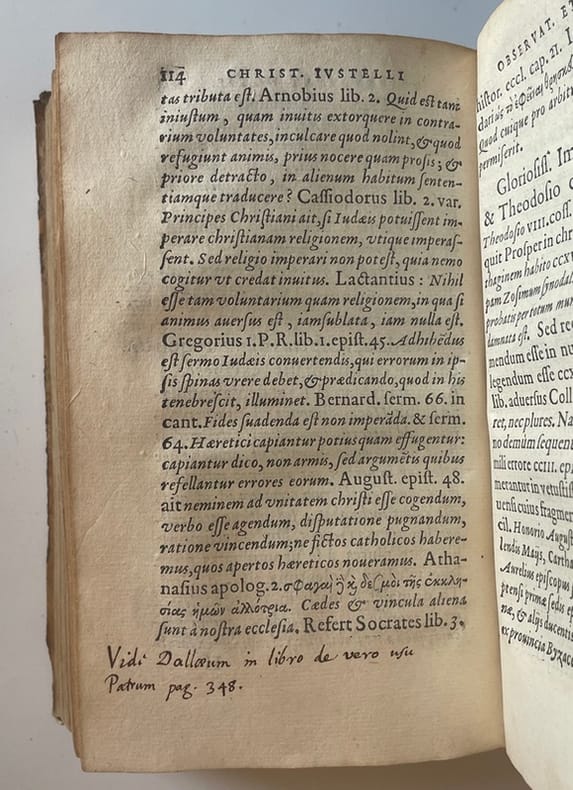 114 CHRIST. IVSTELLI
tas tributa est. Arnobius lib. 2. Quid est tam
iniustum, quam inuitis extorquere in contra-
rium voluntates, inculcare quod nolint, & quod
refugiunt animis, prius nocere quam prosis; &
priore detracto, in alienum habitum senten-
tiamque traducere? Cassiodorus lib. 2. var.
Principes Christiani ait, si Iudæis potuissent im-
perare christianam religionem, vtique imperas-
sent. Sed religio imperari non potest, quia nemo
cogitur vt credat inuitus. Lactantius: Nihil
esse tam voluntarium quam religionem, in qua si
animus auersus est, iam sublata, iam nulla est.
Gregorius 1. P. R. lib. 1. epist. 45. Adhibēdus
est sermo Iudæis conuertendis, qui errorum in ip-
sis spinas vrere debet, & prædicando, quod in his
tenebrescit, illuminet. Bernard. serm. 66. in
cant. Fides suadenda est non imperāda. & serm.
64. Hæretici capiantur potius quam effugentur:
capiantur dico, non armis, sed argumētis quibus
refellantur errores eorum. August. epist. 48.
ait neminem ad vnitatem christi esse cogendum,
verbo esse agendum, disputatione pugnandum,
ratione vincendum; ne fictos catholicos habere-
mus, quos apertos hæreticos noueramus. Atha-
nasius apolog. 2. σφαγαὶ ἢ καὶ δεσμοὶ τῆς ἐκκλη-
σίας ἡμῶν ἀλλότρια. Cædes & vincula aliena
sunt à nostra ecclesia. Refert Socrates lib. 3.
Vidi Dallæum in libro de vero usu
Patrum pag. 348.
OBSERVAT. ET
histor. eccl. cap. 21.
Quod cuique pro arbitr
permiserit.
Gloriosiss. Im
& Theodosio
Theodosio VIII. coss.
quit Prosper in chr
thaginem habito CCXV
pam Zosimum synodal
probatis per totum mun
damnata est. Sed re
mendum esse in nu
legendum esse CCX
lib. aduersus Coll
ret, nec plures. Na
no demùm sequen
mili errore CCIII. ep
merantur in vetustiss
uensi cuius fragmen
cil. Honorio August
lendis Maijs, Cartha
Aurelius episcopus
ptensi primæ sedis
næ, & alijs ducentis
ex prouincia Byzace